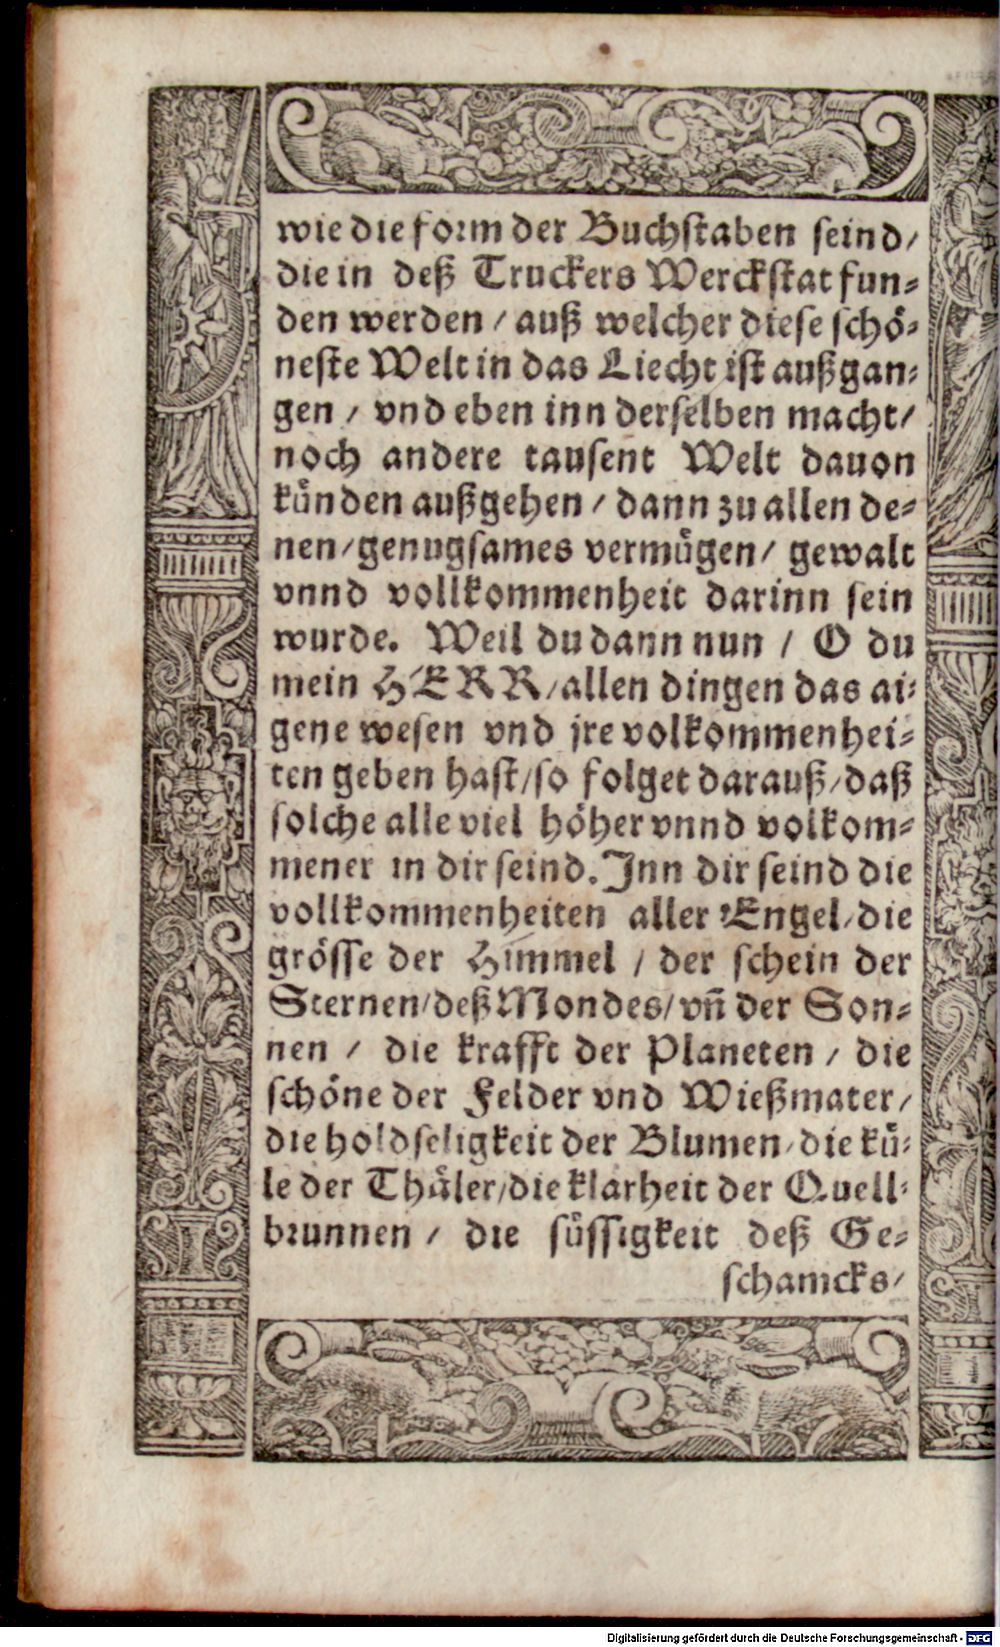 wie die form der Buchstaben seind/
die in deß Truckers Werckstat fun-
den werden / auß welcher diese schö-
neste Welt in das Liecht ist außgan-
gen / vnd eben inn derselben macht/
noch andere tausent Welt dauon
künden außgehen / dann zu allen de-
nen/genugsames vermügen/ gewalt
vnnd vollkommenheit darinn sein
wurde. Weil du dann nun / O du
mein HERR/allen dingen das ai-
gene wesen vnd jre volkommenhei-
ten geben hast/so folget darauß/daß
solche alle viel höher vnnd volkom-
mener in dir seind. Inn dir seind die
vollkommenheiten aller Engel/die
grösse der Himmel / der schein der
Sternen/deß Mondes/vñ der Son-
nen / die krafft der Planeten / die
schöne der Felder vnd Wießmater/
die holdseligkeit der Blumen/die kü-
le der Thäler/die klarheit der Quell-
brunnen / die süssigkeit deß Ge-
schamcks/
Digitalisierung gefördert durch die Deutsche Forschungsgemeinschaft - DFG